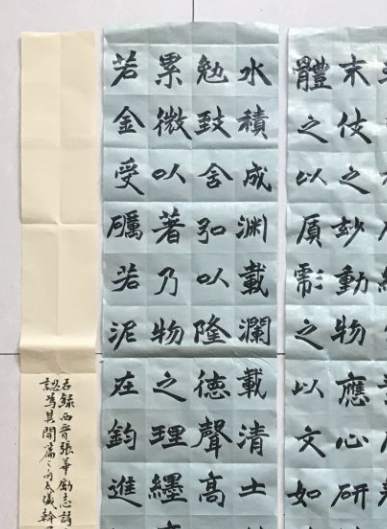 末伎之妙動物應心研
體之以質彪之以文如
水積成淵載瀾載清土
勉致含弘以隆德聲高
累微以著乃物之理纆
若金受礪若泥在鈞進
右錄西晉張華勵志詩
認為其開篇之句大儀斡